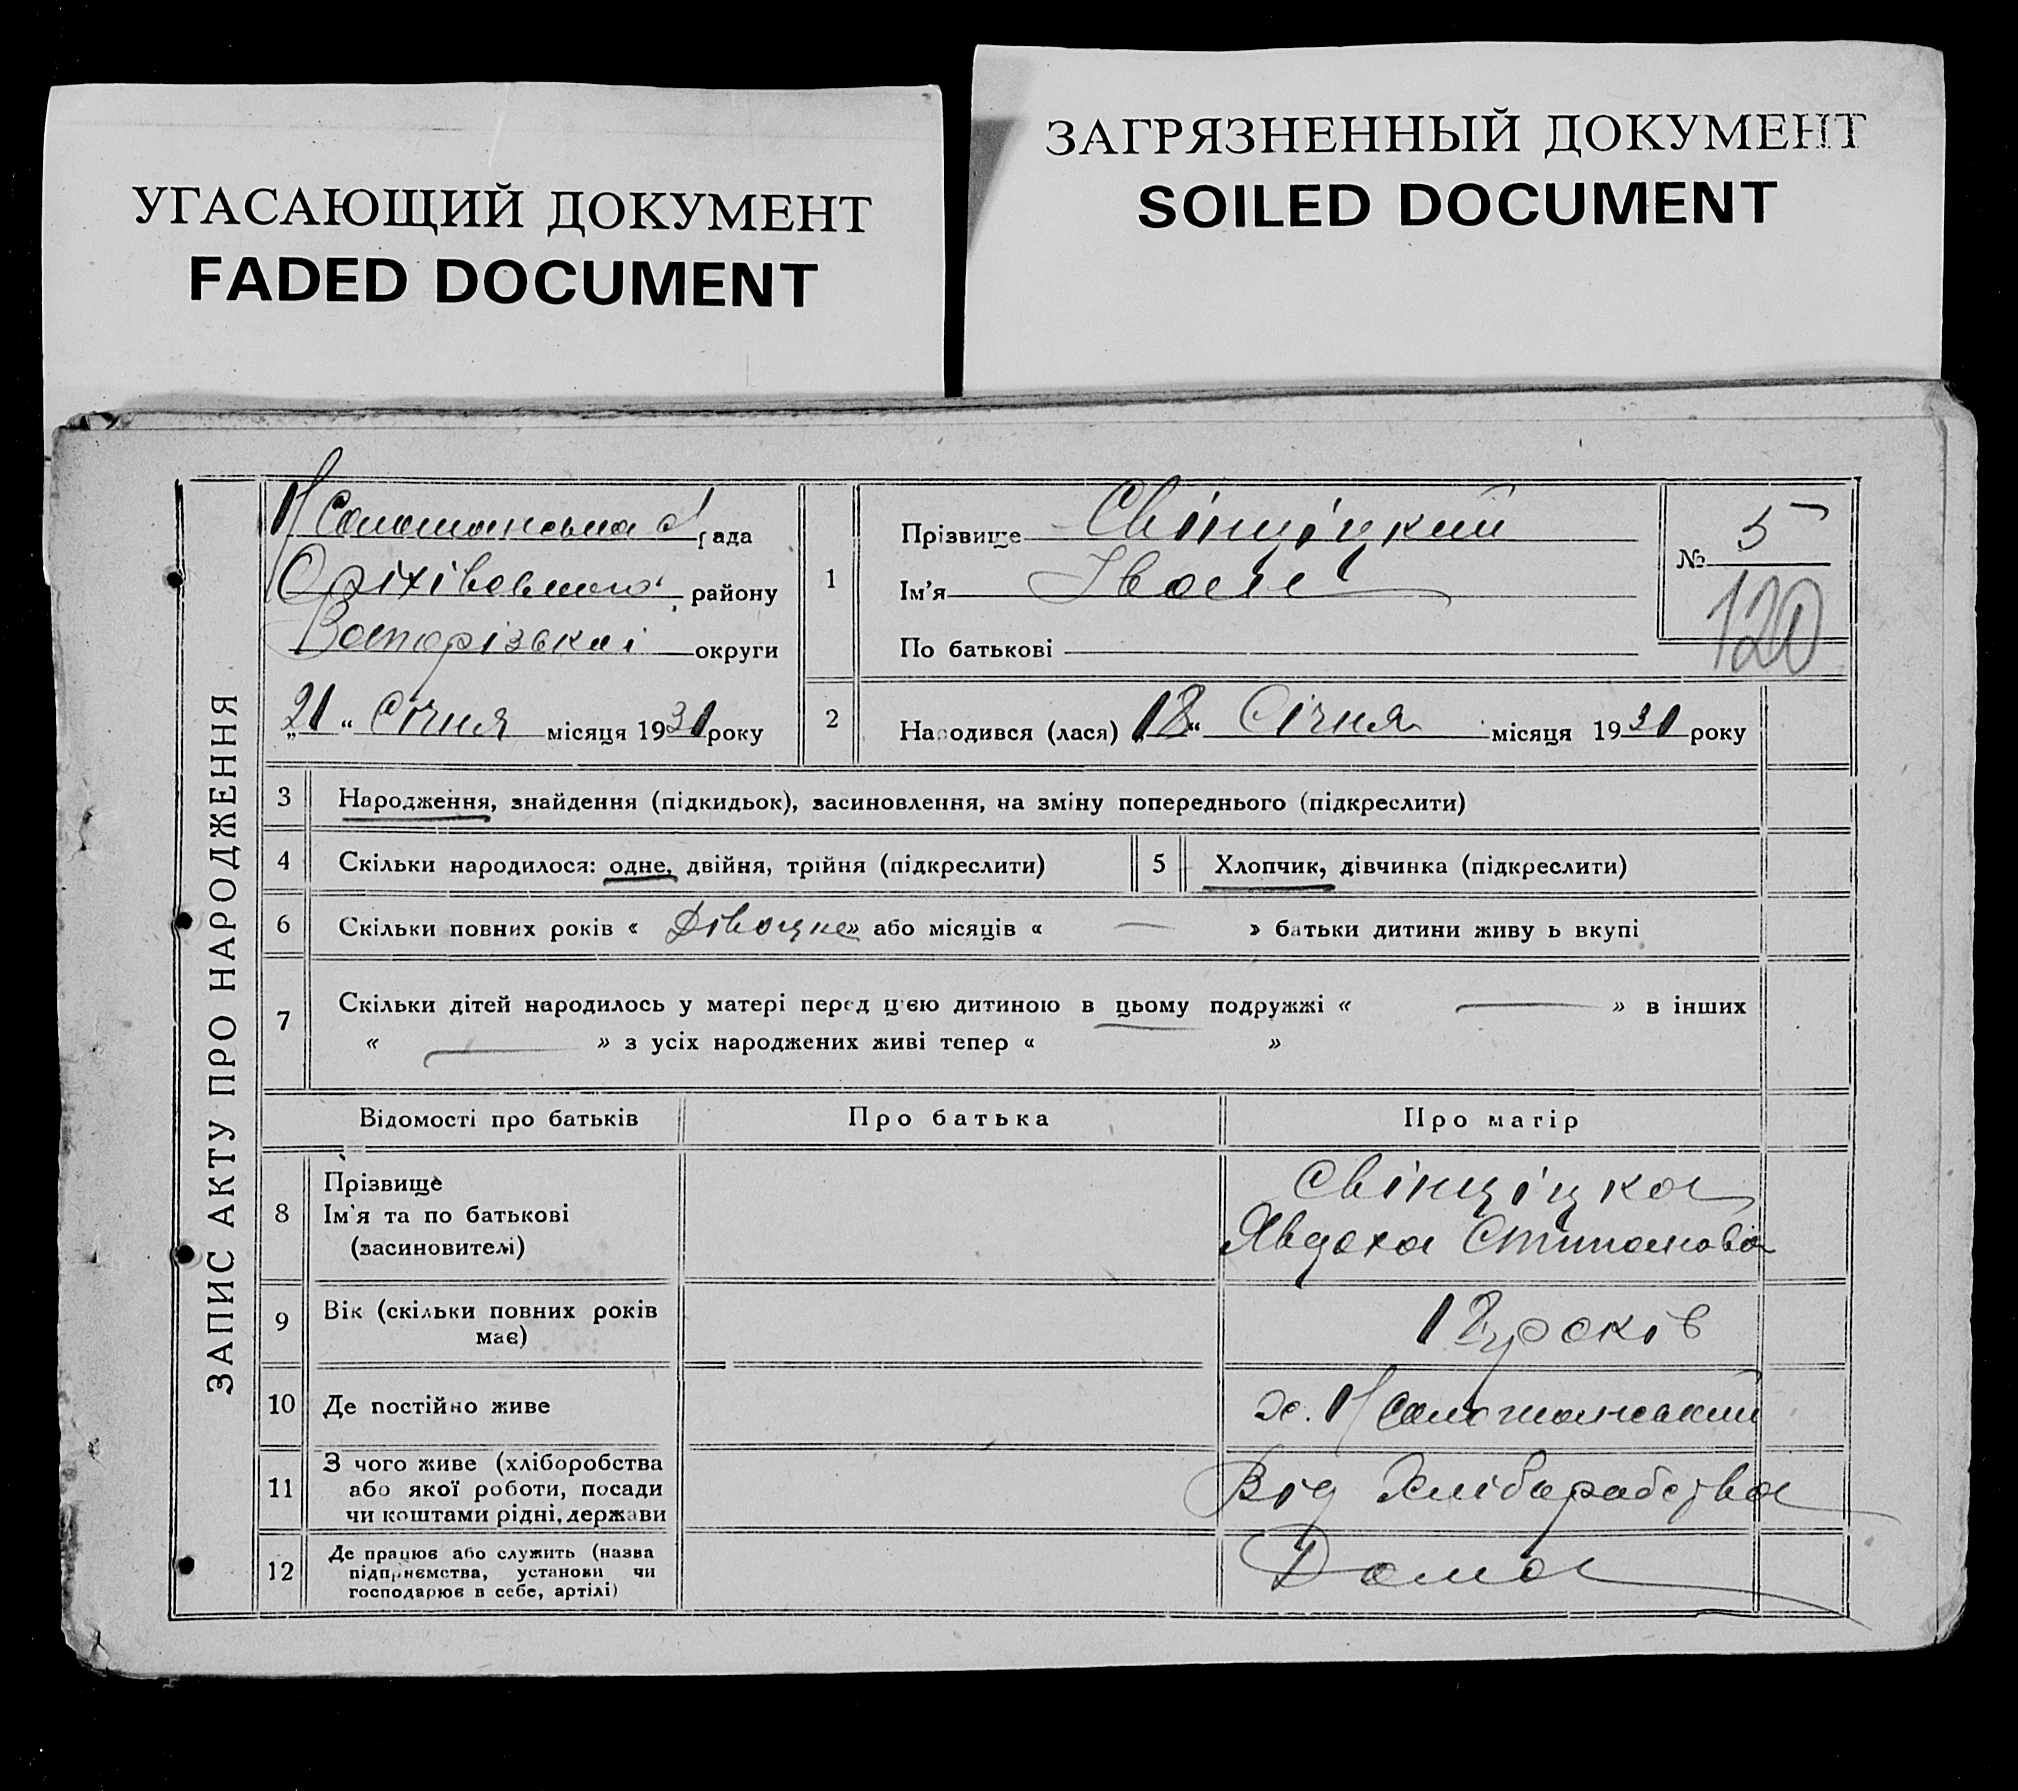 УГАСАЮЩИЙ ДОКУМЕНТ
FADED DOCUMENT
ЗАГРЯЗНЕННЫЙ ДОКУМЕНТ
SOILED DOCUMENT
ЗАПИС АКТУ ПРО НАРОДЖЕННЯ
рада
району
Запорізької округи
„21“ Січня місяця 1931 року
1
Прізвище Свінціцкий
Ім'я Іван
По батькові
№ 5
120
2
Народився (лася) „18“ Січня місяця 1931 року
3 Народження, знайдення (підкидьок), засиновлення, на зміну попереднього (підкреслити)
4 Скільки народилося: одне, двійня, трійня (підкреслити)
5 Хлопчик, дівчинка (підкреслити)
6 Скільки повних років « » або місяців « — » батьки дитини живу ь вкупі
7 Скільки дітей народилось у матері перед цією дитиною в цьому подружжі « — » в інших
« — » з усіх народжених живі тепер « »
Відомості про батьків
Про батька
Про матір
8 Прізвище
Ім'я та по батькові
(засиновителі)
Свінціцка
Явдоха Стипанова
9 Вік (скільки повних років
має)
років
10 Де постійно живе
х. Н
11 З чого живе (хліборобства
або якої роботи, посади
чи коштами рідні, держави
Від Хліборобства
12 Де працює або служить (назва
підприємства, установи чи
господарює в себе, артілі)
Дома